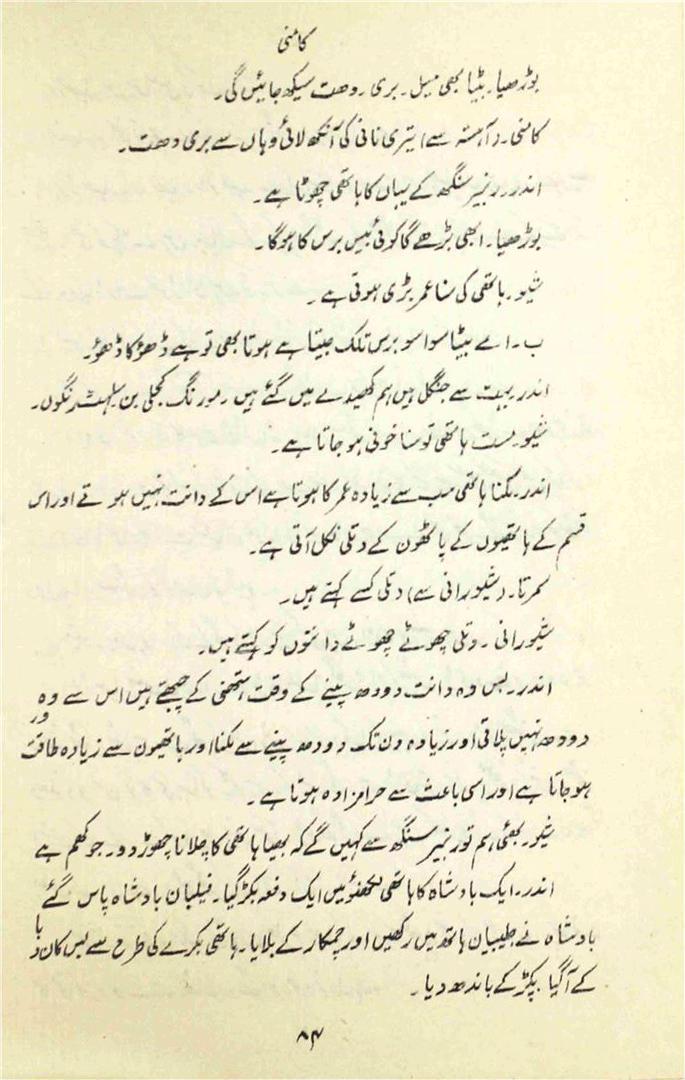 کامنی
بوڑھیا۔ بٹیا بھی میل۔ بری۔ دھت سیکھ جائیں گی۔
کامنی۔ (آہستہ سے) تیری نانی کی آنکھ لائی وہاں سے بری دھت۔
اندر۔ رنبیر سنگھ کے یہاں کا ہاتھی چھوٹا ہے۔
بوڑھیا۔ ابھی بڑھے گا کوئی بیس برس کا ہوگا۔
شیو۔ ہاتھی کی سنا عمر بڑی ہوتی ہے۔
ب۔ اے بیٹا سوا سو برس تلک جیتا ہے ہوتا بھی تو ہے ڈھڑکا ڈھڑ۔
اندر۔ بہت سے جنگل ہیں ہم کھیدے میں گئے ہیں۔ مورنگ کجلی بن سلہٹ رنگون۔
شیو۔ مست ہاتھی تو سنا خونی ہو جاتا ہے۔
اندر۔ مکنا ہاتھی سب سے زیادہ عمر کا ہوتا ہے اس کے دانت نہیں ہوتے اور اس
قسم کے ہاتھیوں کے پاٹھون کے دتلی نکل آتی ہے۔
سمرتا۔ (شیورانی سے) دتلی کسے کہتے ہیں۔
شیورانی۔ دتلی چھوٹے چھوٹے دانتوں کو کہتے ہیں۔
اندر۔ بس وہ دانت دودھ پینے کے وقت ہتھنی کے چبھتے ہیں اس سے وہ
دودھ نہیں پلاتی اور زیادہ دن تک دودھ پینے سے مکنا اور ہاتھیون سے زیادہ طاقتور
ہو جاتا ہے اور اسی باعث سے حرامزادہ ہوتا ہے۔
شیو۔ بھئی ہم تو رنبیر سنگھ سے کہیں گے کہ بھیا ہاتھی کا چلانا چھوڑ دو۔ جوکھم ہے
اندر۔ ایک بادشاہ کا ہاتھی لکھنؤ میں ایک دفعہ بگڑ گیا۔ فیلبان بادشاہ پاس گئے
بادشاہ نے جلیبیان ہاتھ میں رکھیں اور چمکار کے بلایا۔ ہاتھی بکرے کی طرح سے بس کان دبا
کے آ گیا۔ پکڑ کے باندھ دیا۔
۸۴